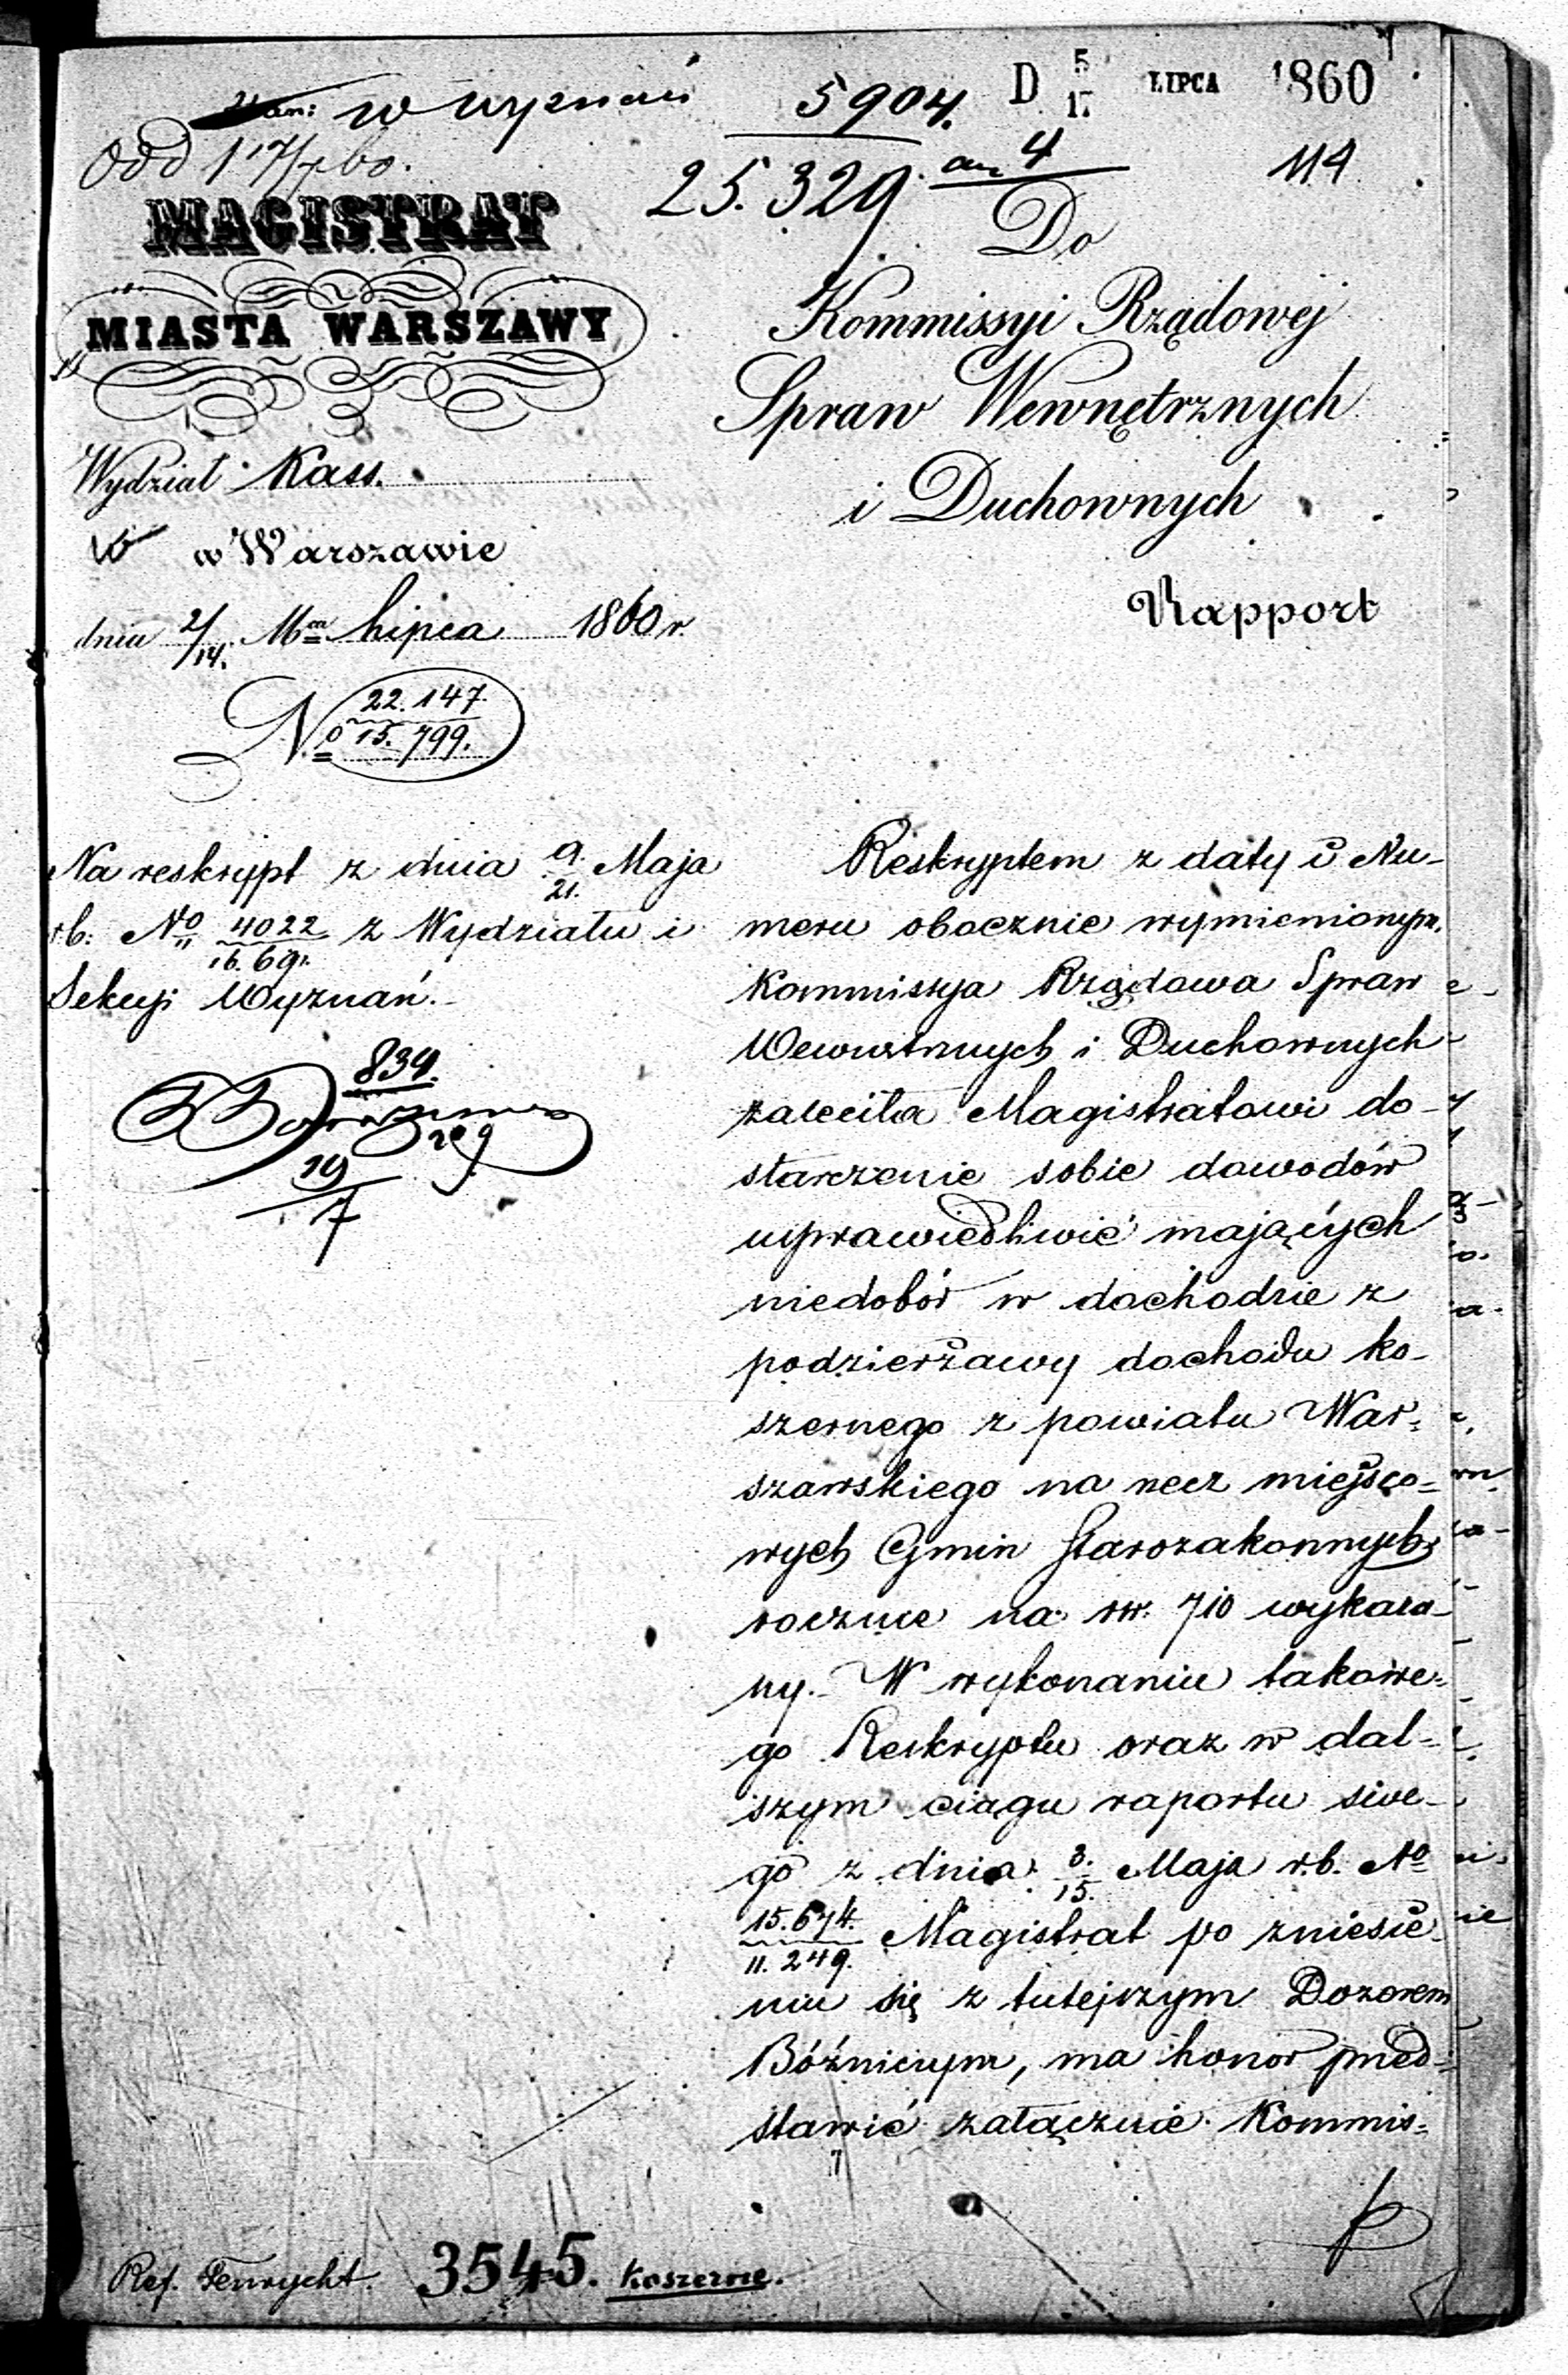 w wyznań
5904. D 5/17 LIPCA 1860
Odd 1 17/7 60.
25.329. an 4
114
MAGISTRAT
MIASTA WARSZAWY
Wydział Kass.
w Warszawie
dnia 2/14. Mca Lipca 1860 r.
No 22.147./15.799.
Do
Kommissyi Rządowej
Spraw Wewnętrznych
i Duchownych
Rapport
Na reskrypt z dnia 9./21. Maja
r.b. No 4022/16.69. z Wydziału i
Sekcyi Wyznań.
834.
19/7
Reskryptem z daty i Nu-
meru obocznie wymienionym,
Kommissya Rządowa Spraw
Wewnętrznych i Duchownych
zaleciła Magistratowi do-
starczenie sobie dowodów
usprawiedliwić mających
niedobór w dochodzie z
podzierżawy dochodu ko-
szernego z powiatu War-
szawskiego na rzecz miejsco-
wych Gmin Starozakonnych
rocznie na rs. 710 wykaza-
ny. W wykonaniu takowe-
go Reskryptu oraz w dal-
szym ciągu raportu swe-
go z dnia 3./15. Maja r.b. No
15.674./11.249. Magistrat po zniesie-
niu się z tutejszym Dozorem
Bóźniczym, ma honor przed-
stawić załącznie Kommis-
Ref. Fenrycht. 3545. Koszerne.